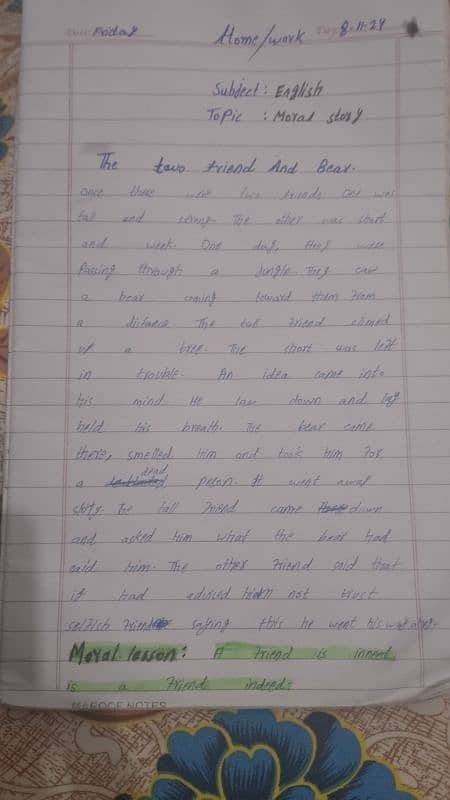 Friday Home/work 8-11-24
Subject: English
Topic : Moral story
The two friend And Bear.
once there were two friends One was
tall and strong. The other was short
and week. One day, they were
Passing through a Jungle. They saw
a bear coming toward them from
a distance. The tall Friend climed
up a tree. The short was left
in trouble. An idea came into
his mind. He law down and
held his breath. The bear came
there, smelled him and took him For
dead
a person. It went away
The tall Friend came down
and asked him what the bear had
said him. The other Friend said that
it had advised him not trust
selfish Friend saying this he went his way
Moral lesson: A Friend is inneed
is a Friend indeed.
MAROOF NOTES